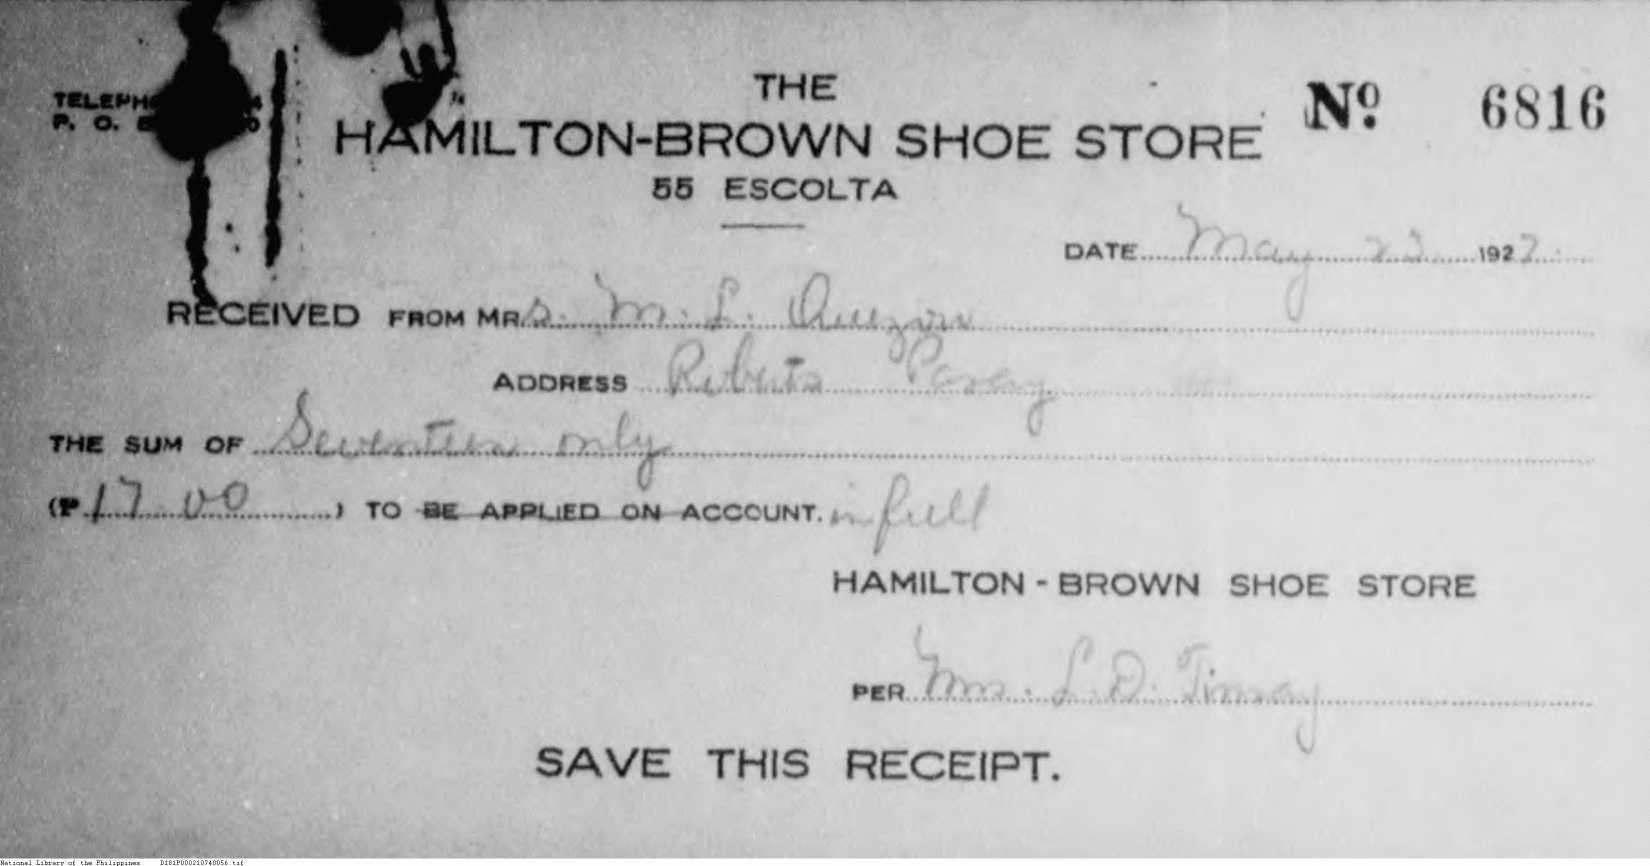 THE
Nº 6816
HAMILTON-BROWN SHOE STORE
P. O.
55 ESCOLTA
DATE May 23 1922
RECEIVED FROM MRS. M. L. Quezon
ADDRESS Roberts Pasay
THE SUM OF Seventeen only
(₱ 17 00 ) TO BE APPLIED ON ACCOUNT. in full
HAMILTON - BROWN SHOE STORE
PER Mrs. L. D.
SAVE THIS RECEIPT.
National Library of the Philippines D181P000210740056.tif